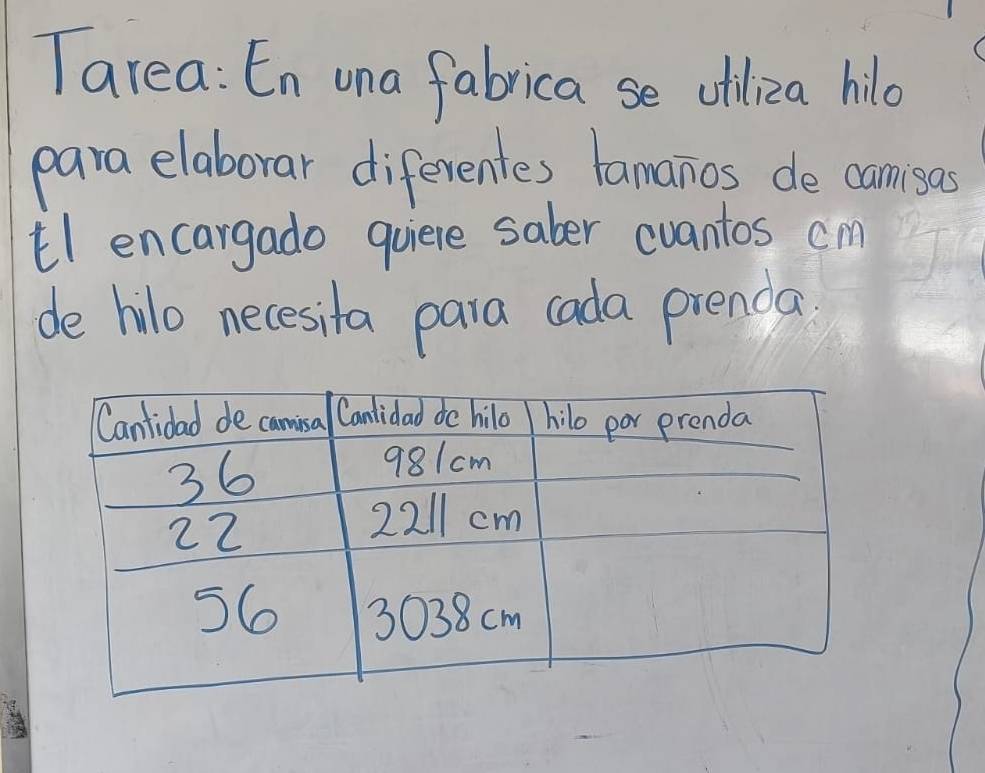 Tarea: En una fabrica se utiliza hilo
para elaborar diferentes tamaños de camisas
El encargado quiere saber cuantos cm
de hilo necesita para cada prenda.
Cantidad de camisa Cantidad de hilo hilo por prenda
36 981cm
22 2211 cm
56 3038 cm